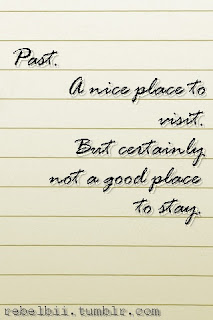 Past.
A nice place to
visit.
But certainly
not a good place
to stay.
rebelbii.tumblr.com